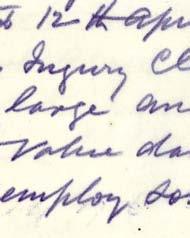 12th Apr
Ingury Cl
large an
Value da
employ so